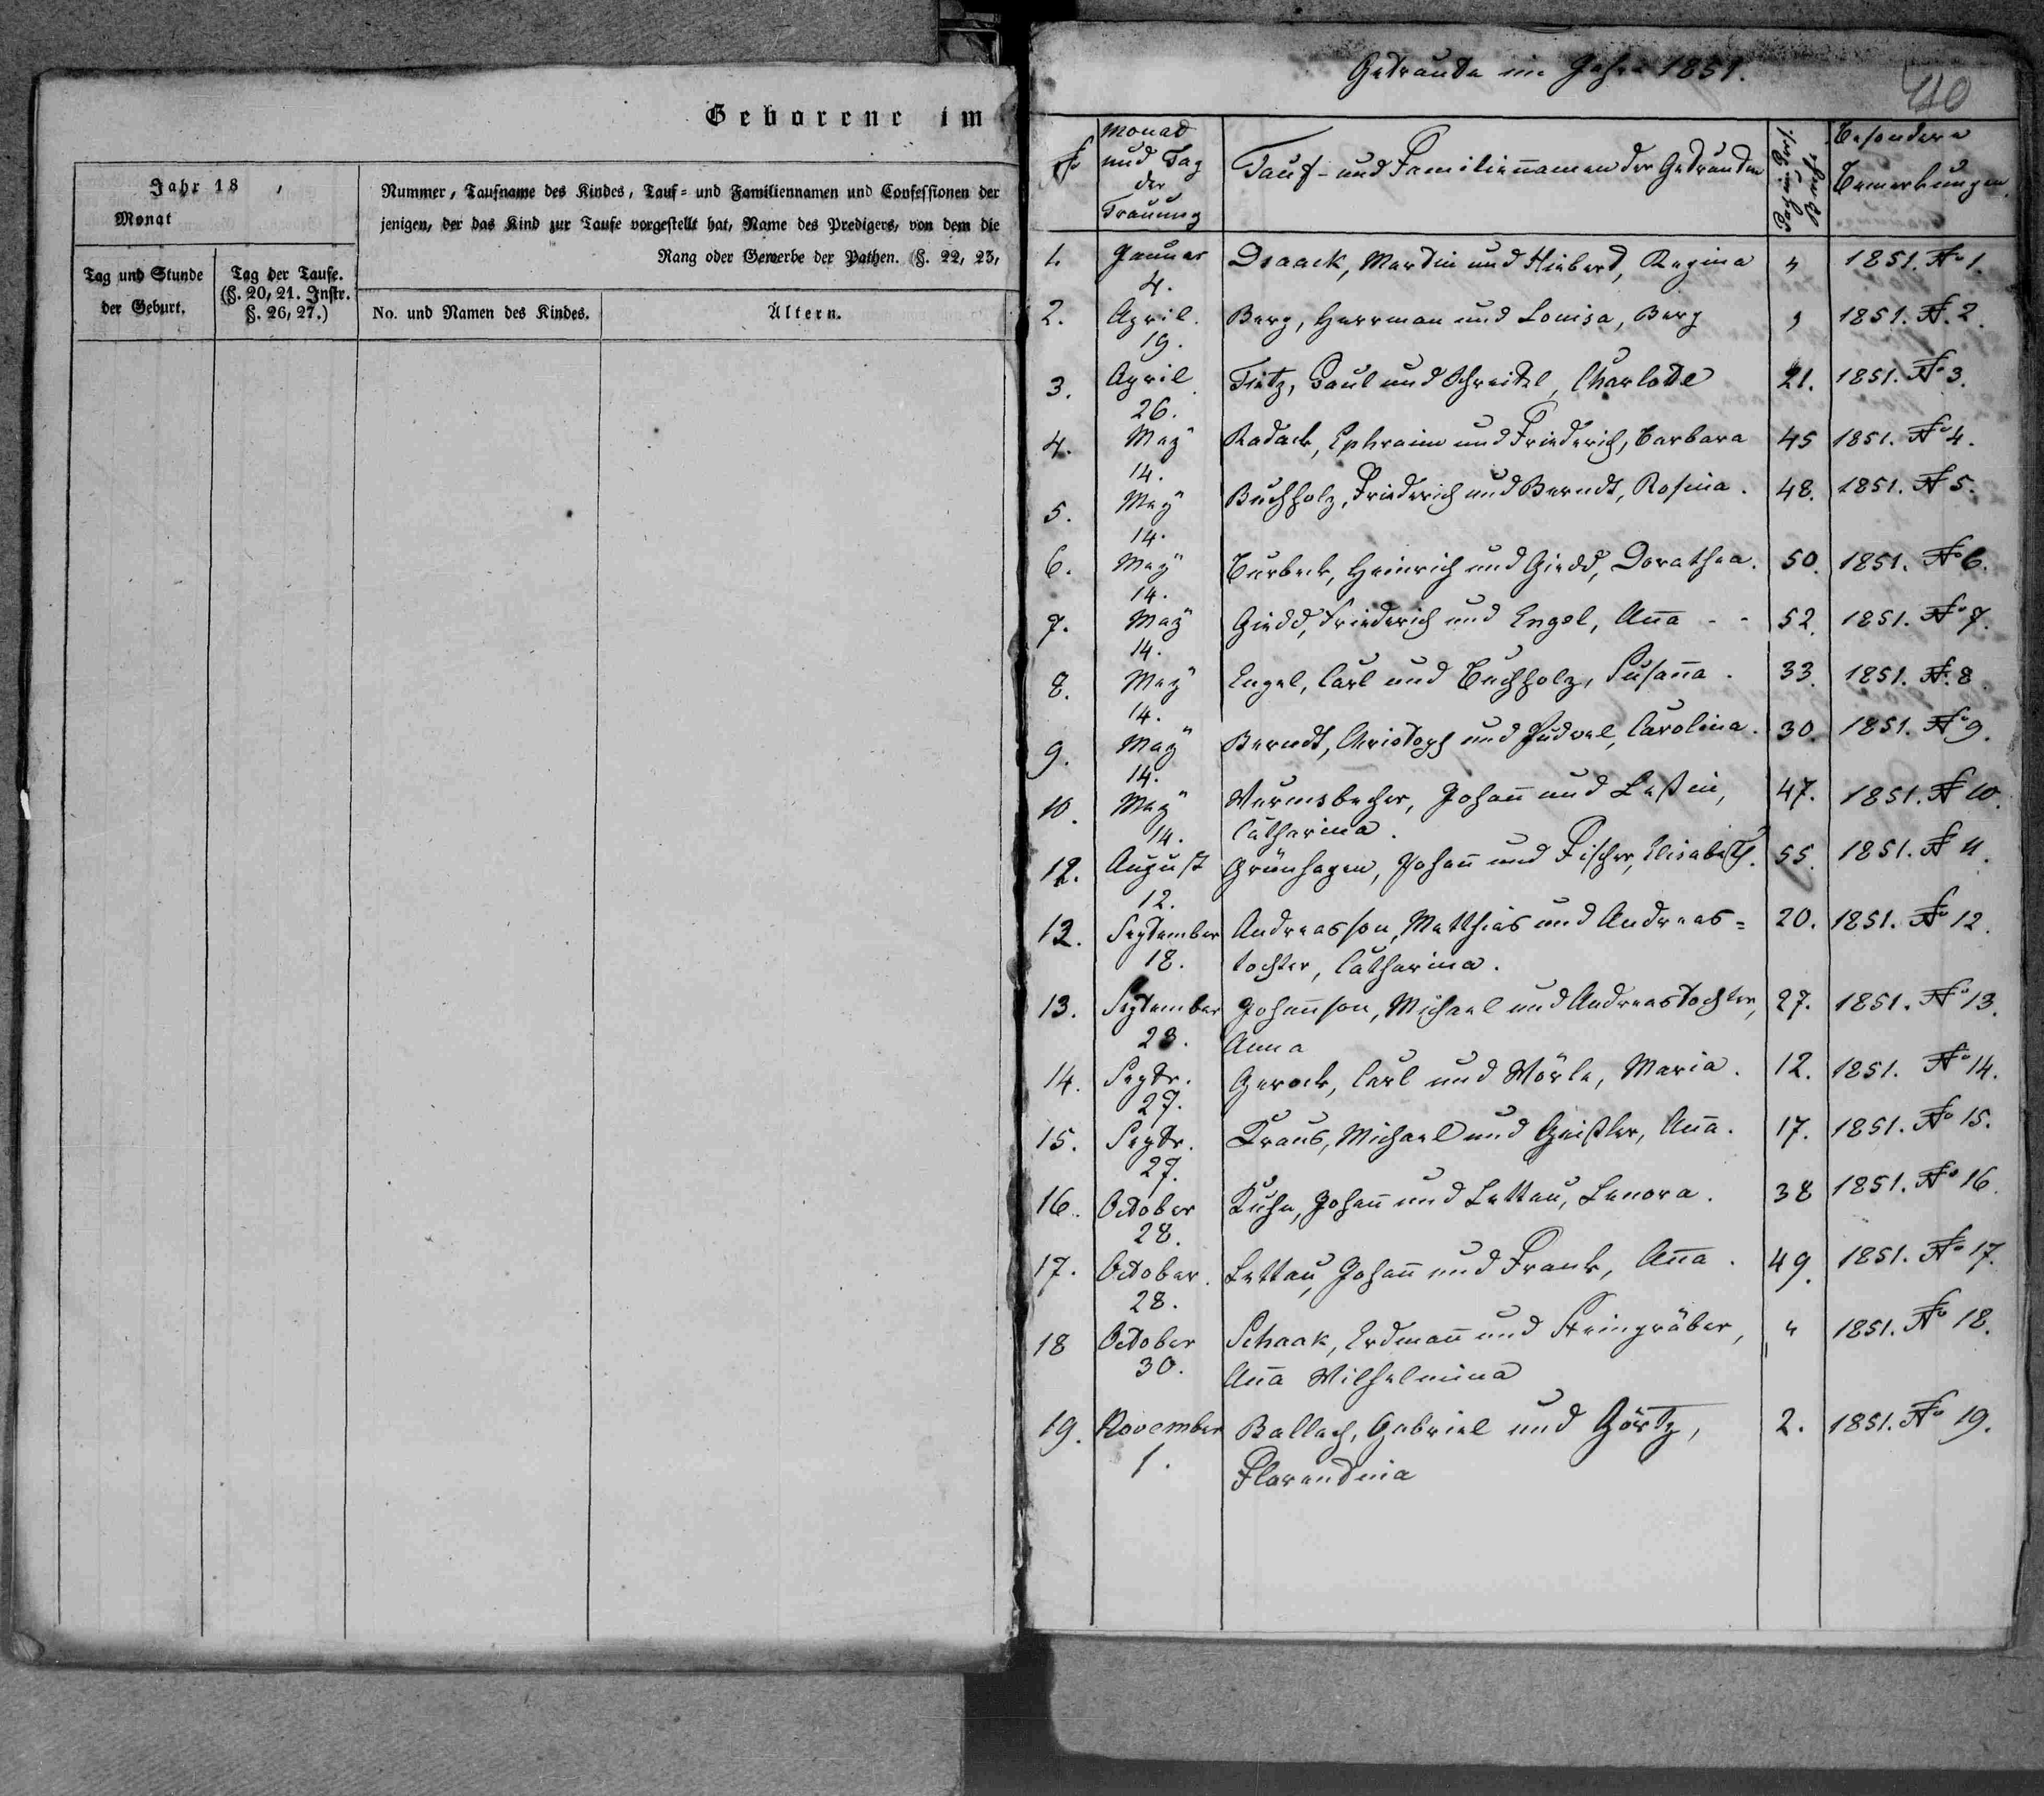 Geborene im
Jahr 18 ,
Monat
Nummer, Taufname des Kindes, Tauf= und Familiennamen und Confessionen der
jenigen, der das Kind zur Taufe vorgestellt hat, Name des Predigers, von dem die
Rang oder Gewerbe der Pathen. (§. 22, 23,
Tag und Stunde
der Geburt.
Tag der Taufe.
(§. 20, 21. Instr.
§. 26, 27.)
No. und Namen des Kindes.
Ältern.
Getraute im Jahre 1851.
410
№
Monat
und Tag
der
Trauung
Tauf- und Familiennamen der Getrauten
Besondere
Bemerkungen.
1. Januar Isaack, Martin und Hiebert, Regina " 1851. № 1.
4.
2. April. Berg, Herrman und Louisa, Berg " 1851. №. 2.
19.
3. April Tietz, Paul und Schreitel, Charlotte 21. 1851. № 3.
26.
4. May Radack, Ephraim und Friederich, Barbara 45 1851. № 4.
14.
5. May Buchholz, Friederich und Berndt, Rosina. 48. 1851. № 5.
14.
6. May Burbeck, Heinrich und Giedd, Dorathea. 50. 1851. № 6.
14.
7. May Giedd, Friederich und Engel, Anna - - 52. 1851. № 7.
14.
8. May Engel, Carl und Buchholz, Susanna. 33. 1851. №. 8
14.
9. May Berndt, Christoph und Judael, Carolina. 30. 1851. № 9.
14.
10. May Wurmsbecher, Johann und Leßin, 47. 1851. № 10.
14. Catharina.
12. August Grünhagen, Johann und Fischer, Elisabeth. 55. 1851. № 11.
12.
12. September Andreasson, Matthias und Andreas= 20. 1851. № 12.
18. tochter, Catharina.
13. September Johannson, Michael und Andreastochter, 27. 1851. № 13.
23. Anna
14. Septr. Gerock, Carl und Wörle, Maria. 12. 1851. № 14.
27.
15. Septr. Kraus, Michael und Geißler, Anna. 17. 1851. № 15.
27.
16. October Kuhn, Johann und Lettau, Lenora. 38 1851. № 16.
28.
17. October. Lettau, Johann und Frank, Anna. 49. 1851. № 17.
28.
18 October Schaak, Erdmann und Steingräber, " 1851. № 18.
30. Anna Wilhelmina
19. November Ballach, Gabriel und Görtz, 2. 1851. № 19.
1. Florendina